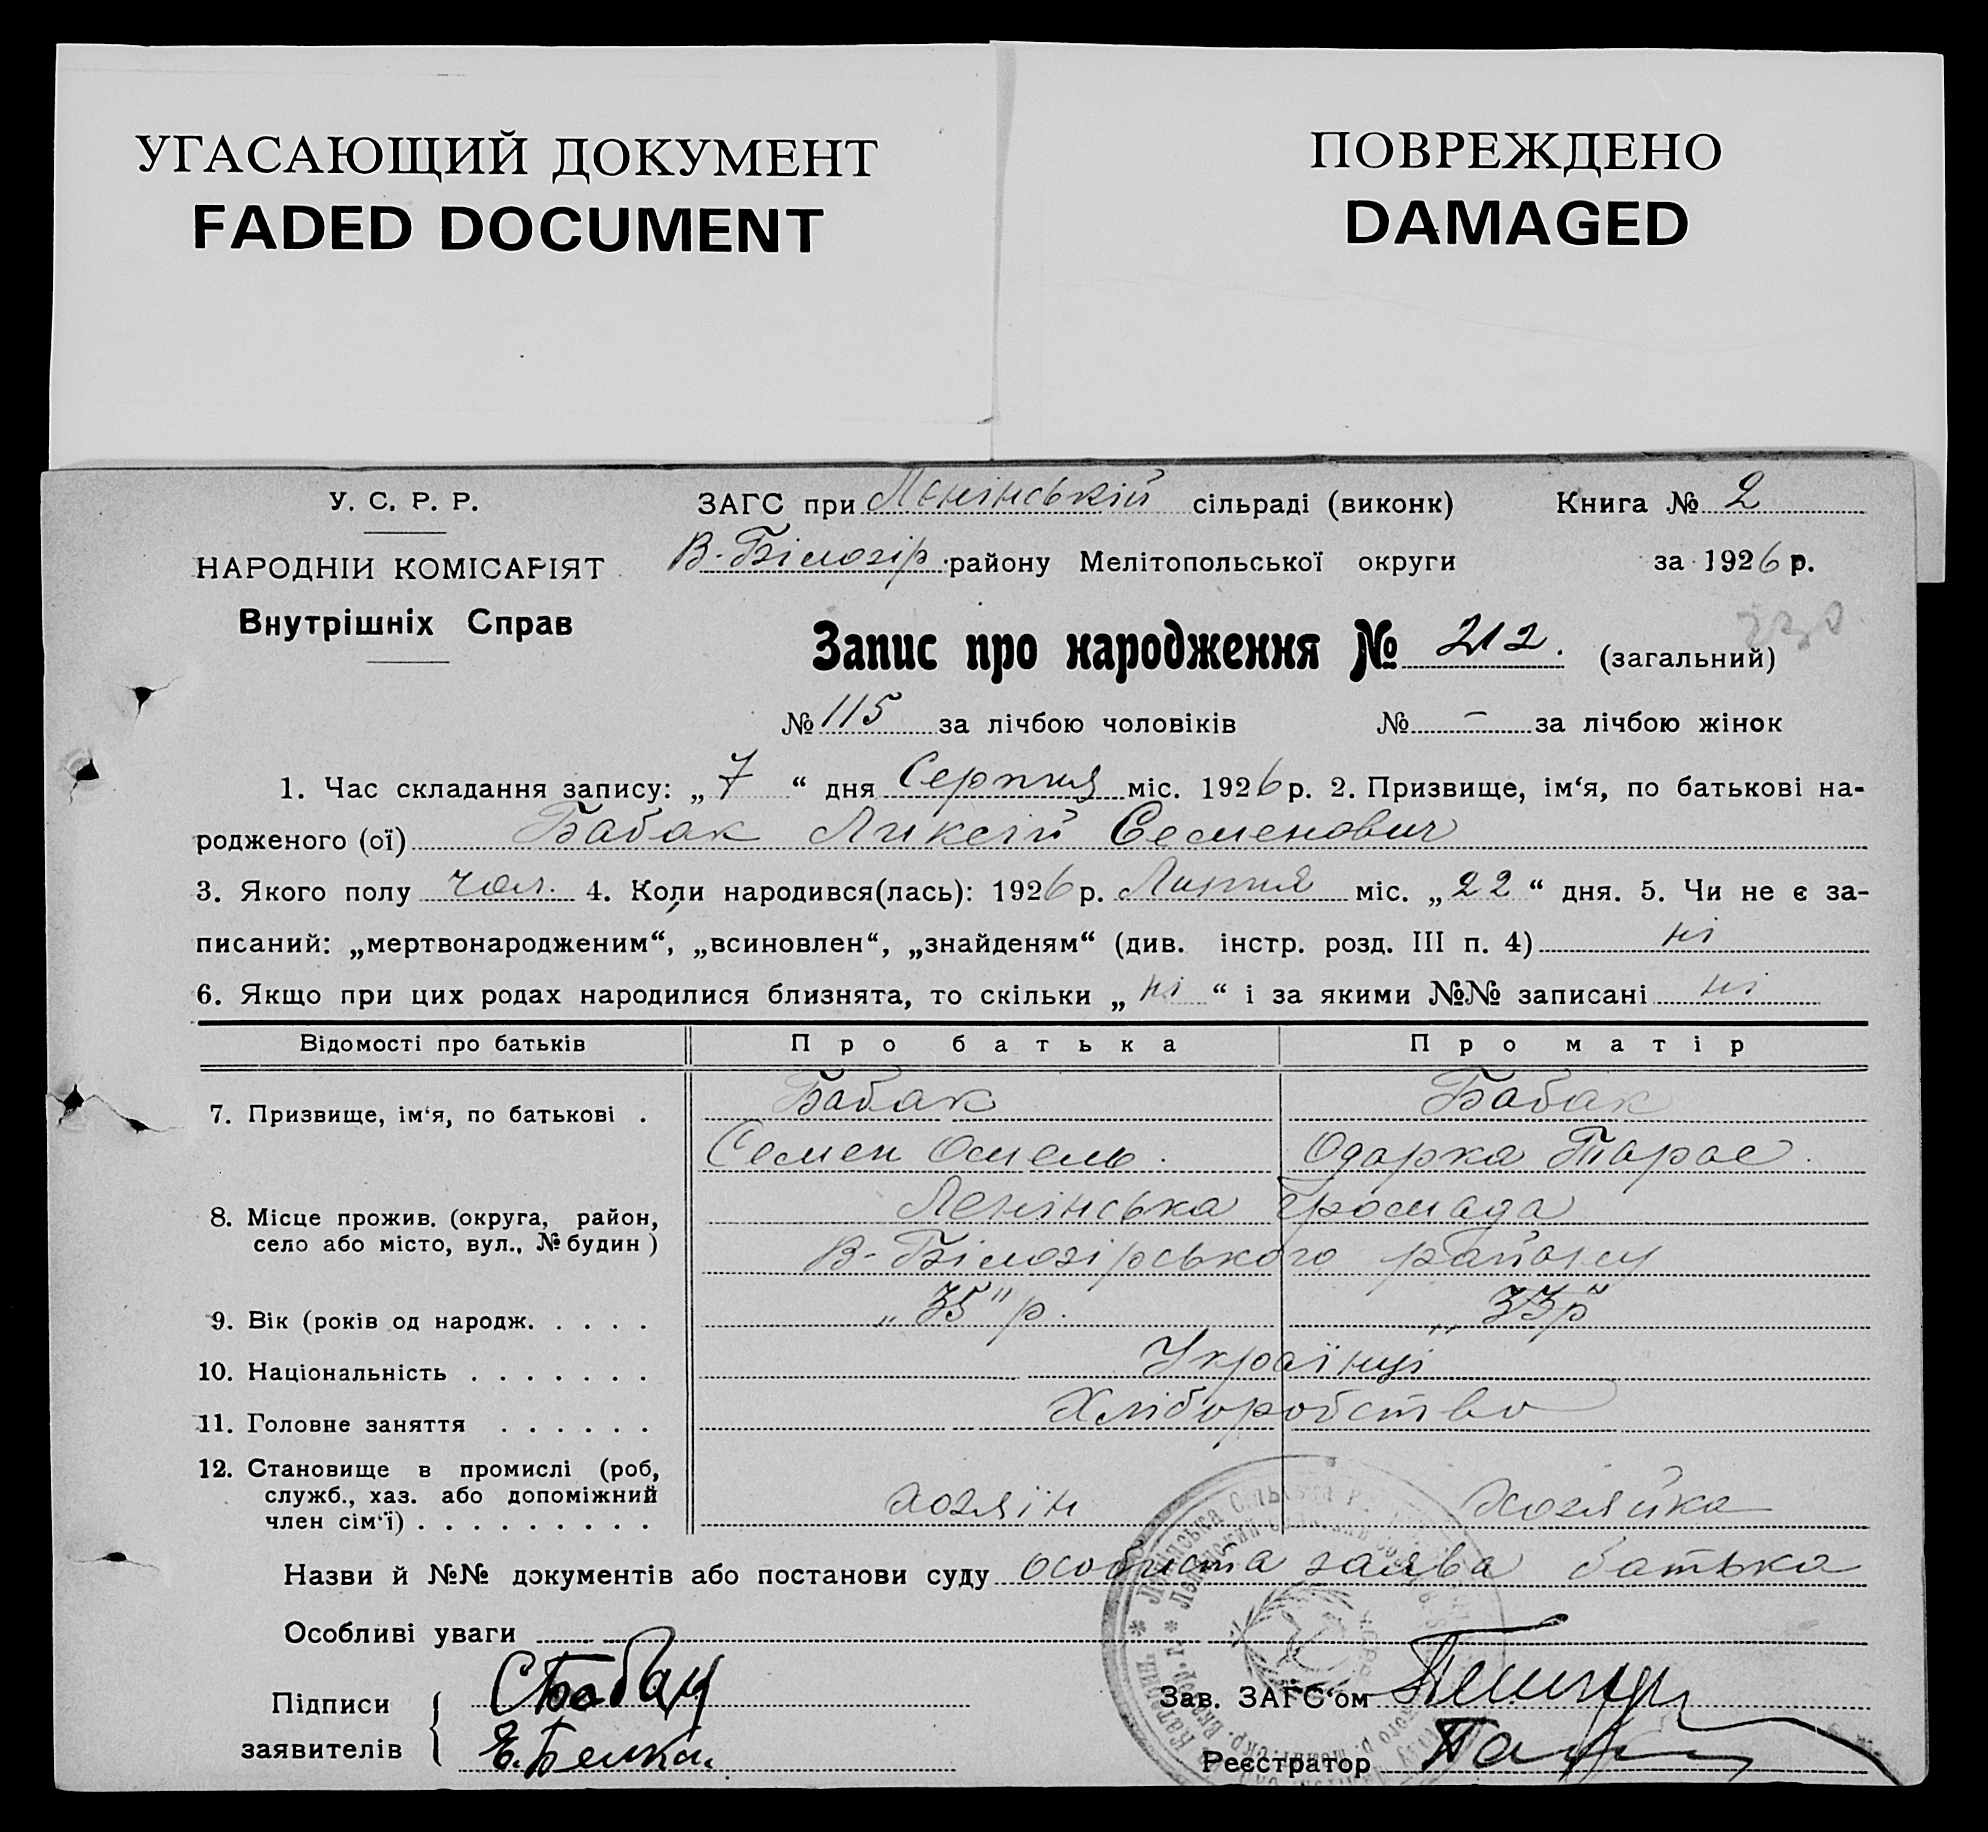 УГАСАЮЩИЙ ДОКУМЕНТ
FADED DOCUMENT
ПОВРЕЖДЕНО
DAMAGED
У. С. Р. Р.
НАРОДНІИ КОМІСАРІЯТ
Внутрішніх Справ
ЗАГС при Ленінській сільраді (виконк) Книга № 2
В-Білозір. району Мелітопольської округи за 1926 р.
230
Запис про народження № 212. (загальний)
№ 115 за лічбою чоловіків № — за лічбою жінок
1. Час складання запису: „ 7 “ дня Серпня міс. 1926 р. 2. Призвище, ім‘я, по батькові на-
родженого (ої) Бабак Ликсій Семенович
3. Якого полу чол. 4. Коли народився(лась): 1926 р. Липня міс. „ 22 “ дня. 5. Чи не є за-
писаний: „мертвонародженим“, „всиновлен“, „знайденям“ (див. інстр. розд. III п. 4) ні
6. Якщо при цих родах народилися близнята, то скільки „ ні “ і за якими №№ записані ні
Відомості про батьків Про батька Про матір
7. Призвище, ім‘я, по батькові . Бабак Бабак
Семен Омель. Одарка Тарас.
8. Місце прожив. (округа, район, Ленінська громада
село або місто, вул., № будин) В-Білозірського району
9. Вік (років од народж. . . . . „35" р. „33р"
10. Національність . . . . . . . Українці
11. Головне заняття . . . . . . Хліборобство
12. Становище в промислі (роб,
служб., хаз. або допоміжний
член сім‘ї) . . . . . . . . . хозяїн хозяйка
Назви й №№ документів або постанови суду особиста заява батька
Особливі уваги
Підписи
заявителів
С Бабак
Е. Белка
Зав. ЗАГС‘ом
Реєстратор